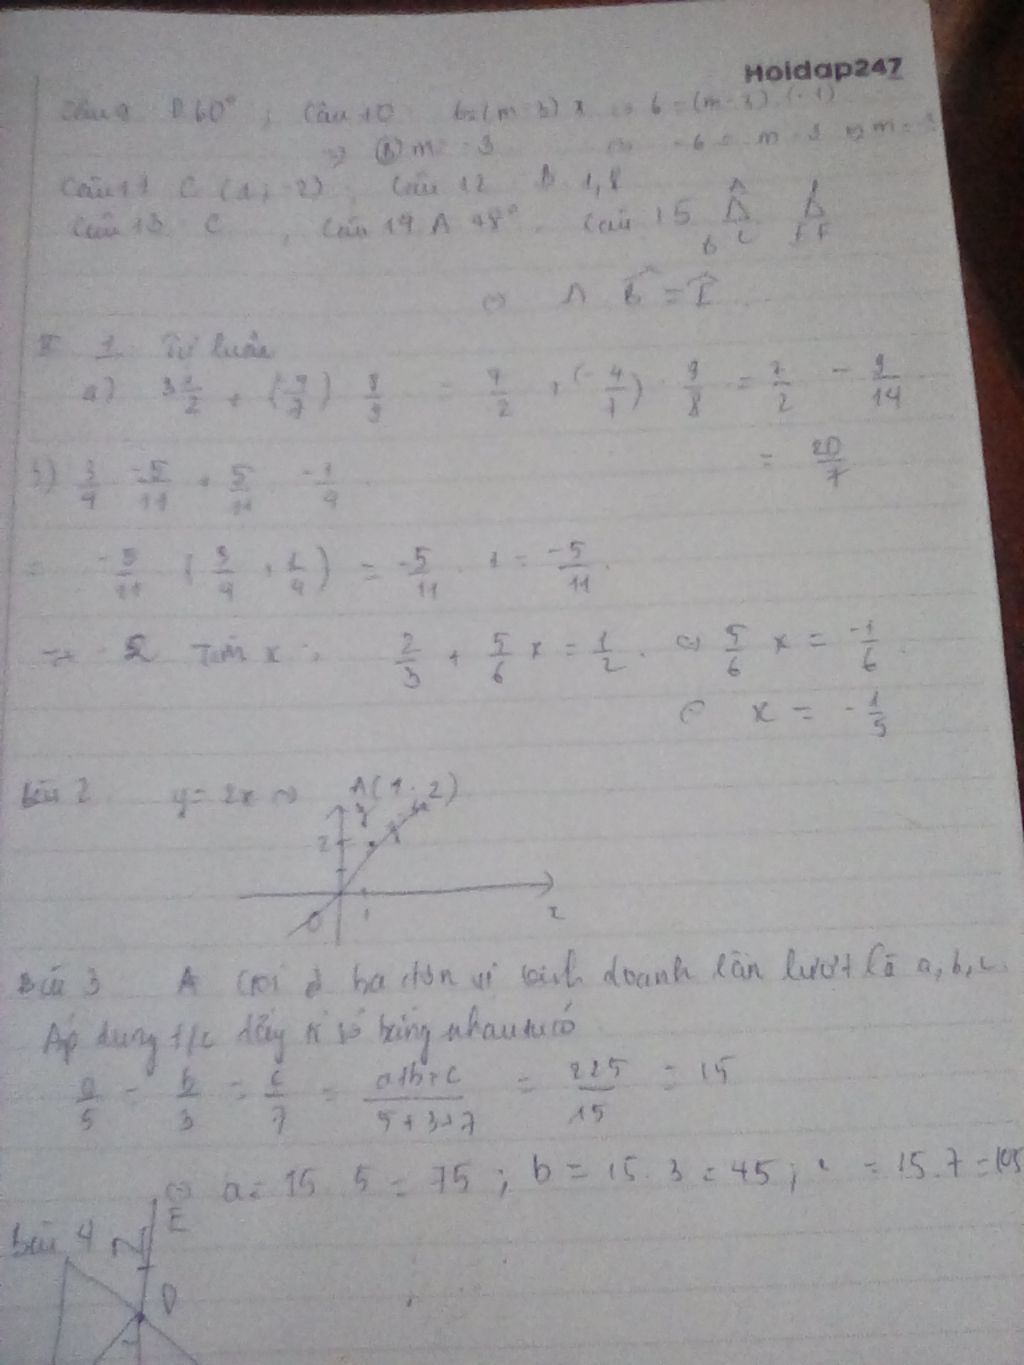 Hoidap247
Câu 9 D 60° ; Câu 10 6 = (m - 3) x ⇔ 6 = (m - 3).(-1)
⇒ (B) m = -3 ⇔ -6 = m - 3 ⇔ m = -3
Câu 11 C (1; -2), Câu 12 B 1,8
Câu 13 C , Câu 14 A 48°. Câu 15 A B C
⇔ A
II 1 Tự luận
a) 3 1/2 + (-4/7) 8/9 = 7/2 + (-4/7) . 9/8 = 7/2 - 9/14
= 20/7
b) 3/4 -5/11 + 5/11 -1/4
= -5/11 (3/4 + 1/4) = -5/11 . 1 = -5/11.
2 Tìm x : 2/3 + 5/6 x = 1/2 . ⇔ 5/6 x = -1/6 .
⇔ x = -1/5
Bài 2 y = 2x ⇒ A(1; 2)
y
2 A
O 1 x
Bài 3 Gọi ba đơn vị kinh doanh lần lượt là a, b, c.
Áp dụng t/c dãy tỉ số bằng nhau ta có
a/5 = b/3 = c/7 = a+b+c/5+3+7 = 225/15 = 15
⇔ a = 15 . 5 = 75 ; b = 15 . 3 = 45 ; c = 15.7 = 105
Bài 4 E
D